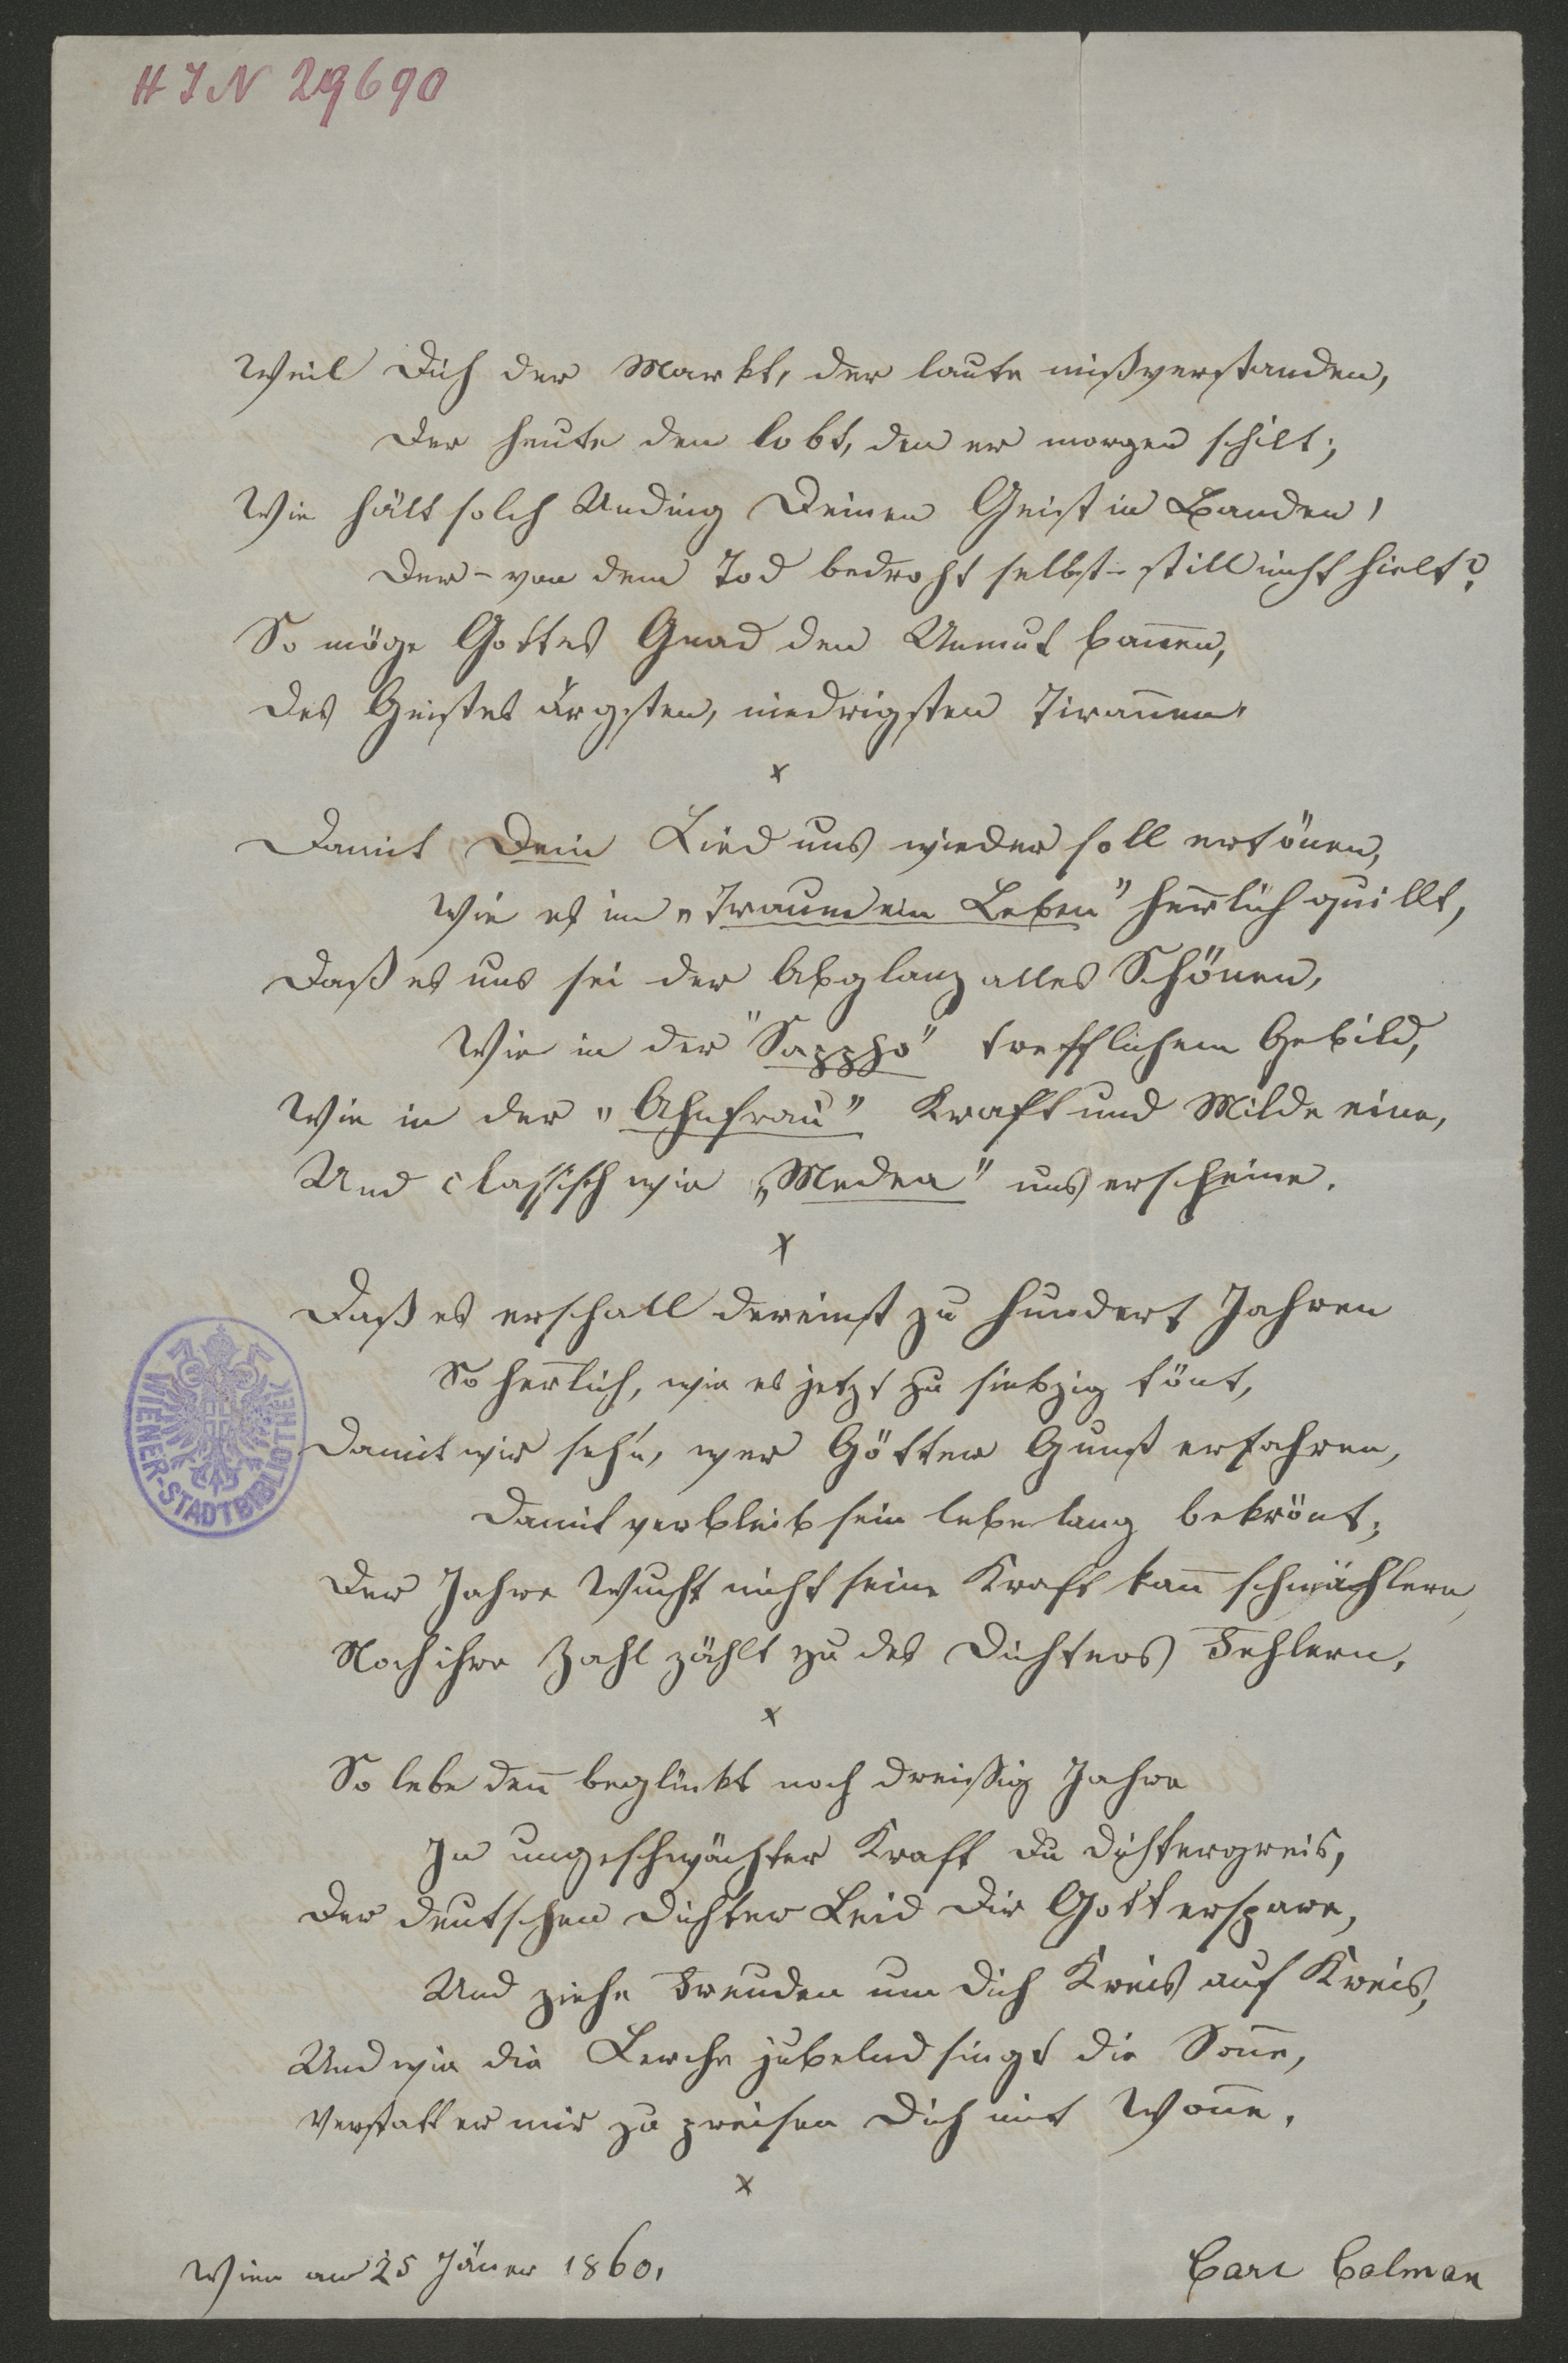 HIN 29690
Weil Dich der Markt, der laute mißverstanden,
Der heute den lobt, den er morgen schilt;
Wie hält solch Unding Deinen Geist in Banden,
Der - von dem Tod bedroht selbst - still nicht hielt?
So möge Gottes Gnad den Unmut ban̄en,
Des Geistes ärgsten, niedrigsten Tiran̄en.
x
Damit Dein Lied uns wieder soll ertönen,
Wie es im „Traum ein Leben" her̄lich quillt,
Daß es uns sei der Abglanz alles Schönen,
Wie in der "Sappho" trefflichem Gebild,
Wie in der „Ahnfrau" Kraft und Milde eine,
Und classisch wie „Medea" uns erscheine.
x
Daß es erschall dereinst zu hundert Jahren
So her̄lich, wie es jetzt zu siebzig tönt,
Damit wir seh'n, wer Götter Gunst erfahren,
Damit verbleib sein lebelang bekrönt;
Der Jahre Wucht nicht seine Kraft kan̄ schwächlern,
Noch ihre Zahl zählt zu des Dichters Fehlern.
x
So lebe den̄ beglückt noch dreissig Jahre
In ungeschwächter Kraft Du Dichtergreis,
Der deutschen Dichter Leid Dir Gott erspare,
Und ziehe Freuden um Dich Kreis auf Kreis,
Und wie die Lerche jubelnd singt die Son̄e,
Verstatt er mir zu preisen Dich mit Won̄e.
x
Wien am 25 Jäner 1860.
Carl Calman
WIENER-STADTBIBLIOTHEK